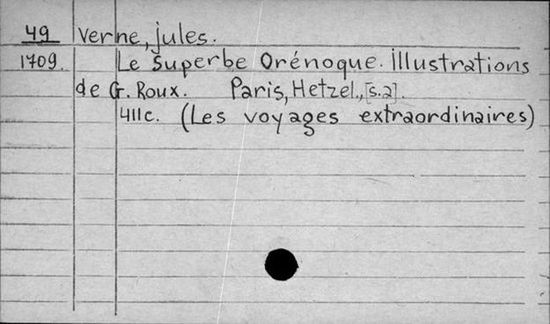 49 Verne, jules.
1709. Le Superbe Orénoque. illustrations
de G. Roux. Paris, Hetzel., [s.a].
411c. (Les voyages extraordinaires)